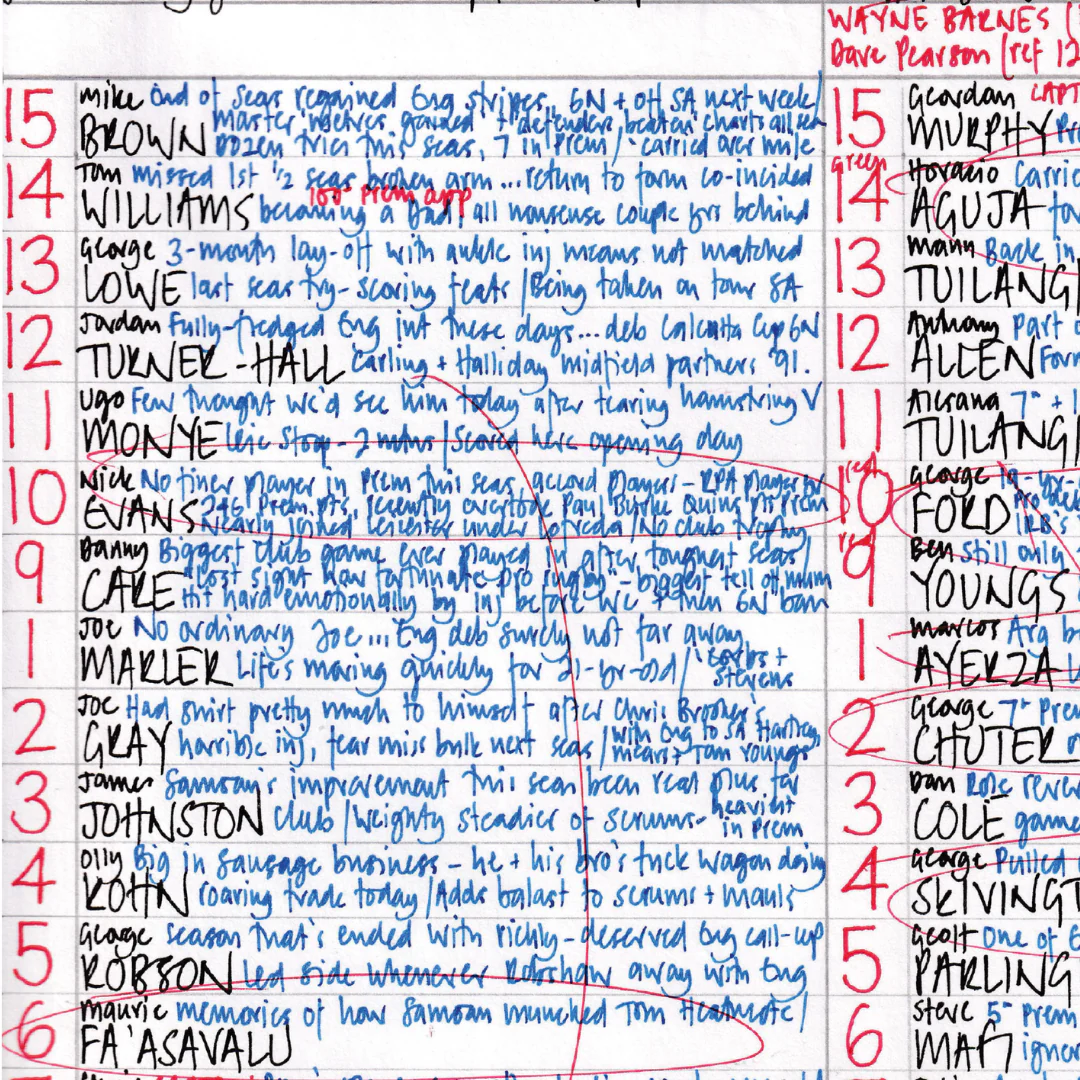 WAYNE BARNES (
Dave Pearson (ref 12
15
Mike End of seas regained Eng stripes, 6N + off SA next week/
BROWN master 'metres gained' + 'defenders beaten' charts all sea
Dozen tries this seas, 7 in Prem / carried over mile
14
Tom missed 1st 1/2 seas broken arm...return to form co-incided
100th Prem app
WILLIAMS becoming a Dad / all nonsense couple yrs behind
13
George 3-month lay-off with ankle inj means not matched
LOWE last seas try-scoring feats / Being taken on tour SA
12
Jordan Fully-fledged Eng int these days...deb Calcutta Cup 6N
TURNER-HALL Carling + Halliday midfield partners '91.
11
Ugo Few thought we'd see him today after tearing hamstring V
MONYE Leic Stoop - 2 mths / Scored here opening day
10
Nick No finer player in Prem this seas, accord players - RPA player yr
EVANS 246 Prem pts, recently overtook Paul Burke Quins pts Prem
Nearly joined Leicester under / No club trophy
9
Danny Biggest club game ever played in after toughest seas/
CARE "Lost sight how fortunate pro rugby" - biggest tell off mum
Hit hard emotionally by inj before WC + then 6N ban
1
Joe No ordinary Joe... Eng deb surely not far away,
MARLER Life's moving quickly for 21-yr-old / Corbs +
Stevens
2
Joe Had shirt pretty much to himself after Chris Brooker's
GRAY horrible inj, fear miss bulk next seas / with Eng to SA Hartley,
Mears + Tom Youngs
3
James Samoan's improvement this seas been real plus for
JOHNSTON club / Weighty steadier of scrums - heaviest
in Prem
4
Olly Big in sausage business - he + his bro's tuck wagon doing
KOHN roaring trade today / Adds balast to scrums + mauls
5
George season that's ended with richly-deserved Eng call-up
ROBSON Led side whenever Robshaw away with Eng
6
Maurie memories of how Samoan munched Tom Heathcote /
FA'ASAVALU
15
Geordan CAPT
MURPHY
green
14
Horacio Carrie
AGUJA
13
Manu Back in
TUILANGI
12
Anthony Part o
ALLEN Form
11
Alesana 7th + 1
TUILANGI
10
George 19-yr-
FORD Pro deb
IRB's
9
Ben still only
YOUNGS
1
Marcos Arg
AYERZA
2
George 7th Prem
CHUTER
3
Dan Role rever
COLE game
4
George Pulled
SKIVINGT
5
Geoff One of E
PARLING
6
Steve 5th Prem
MAFI ignor